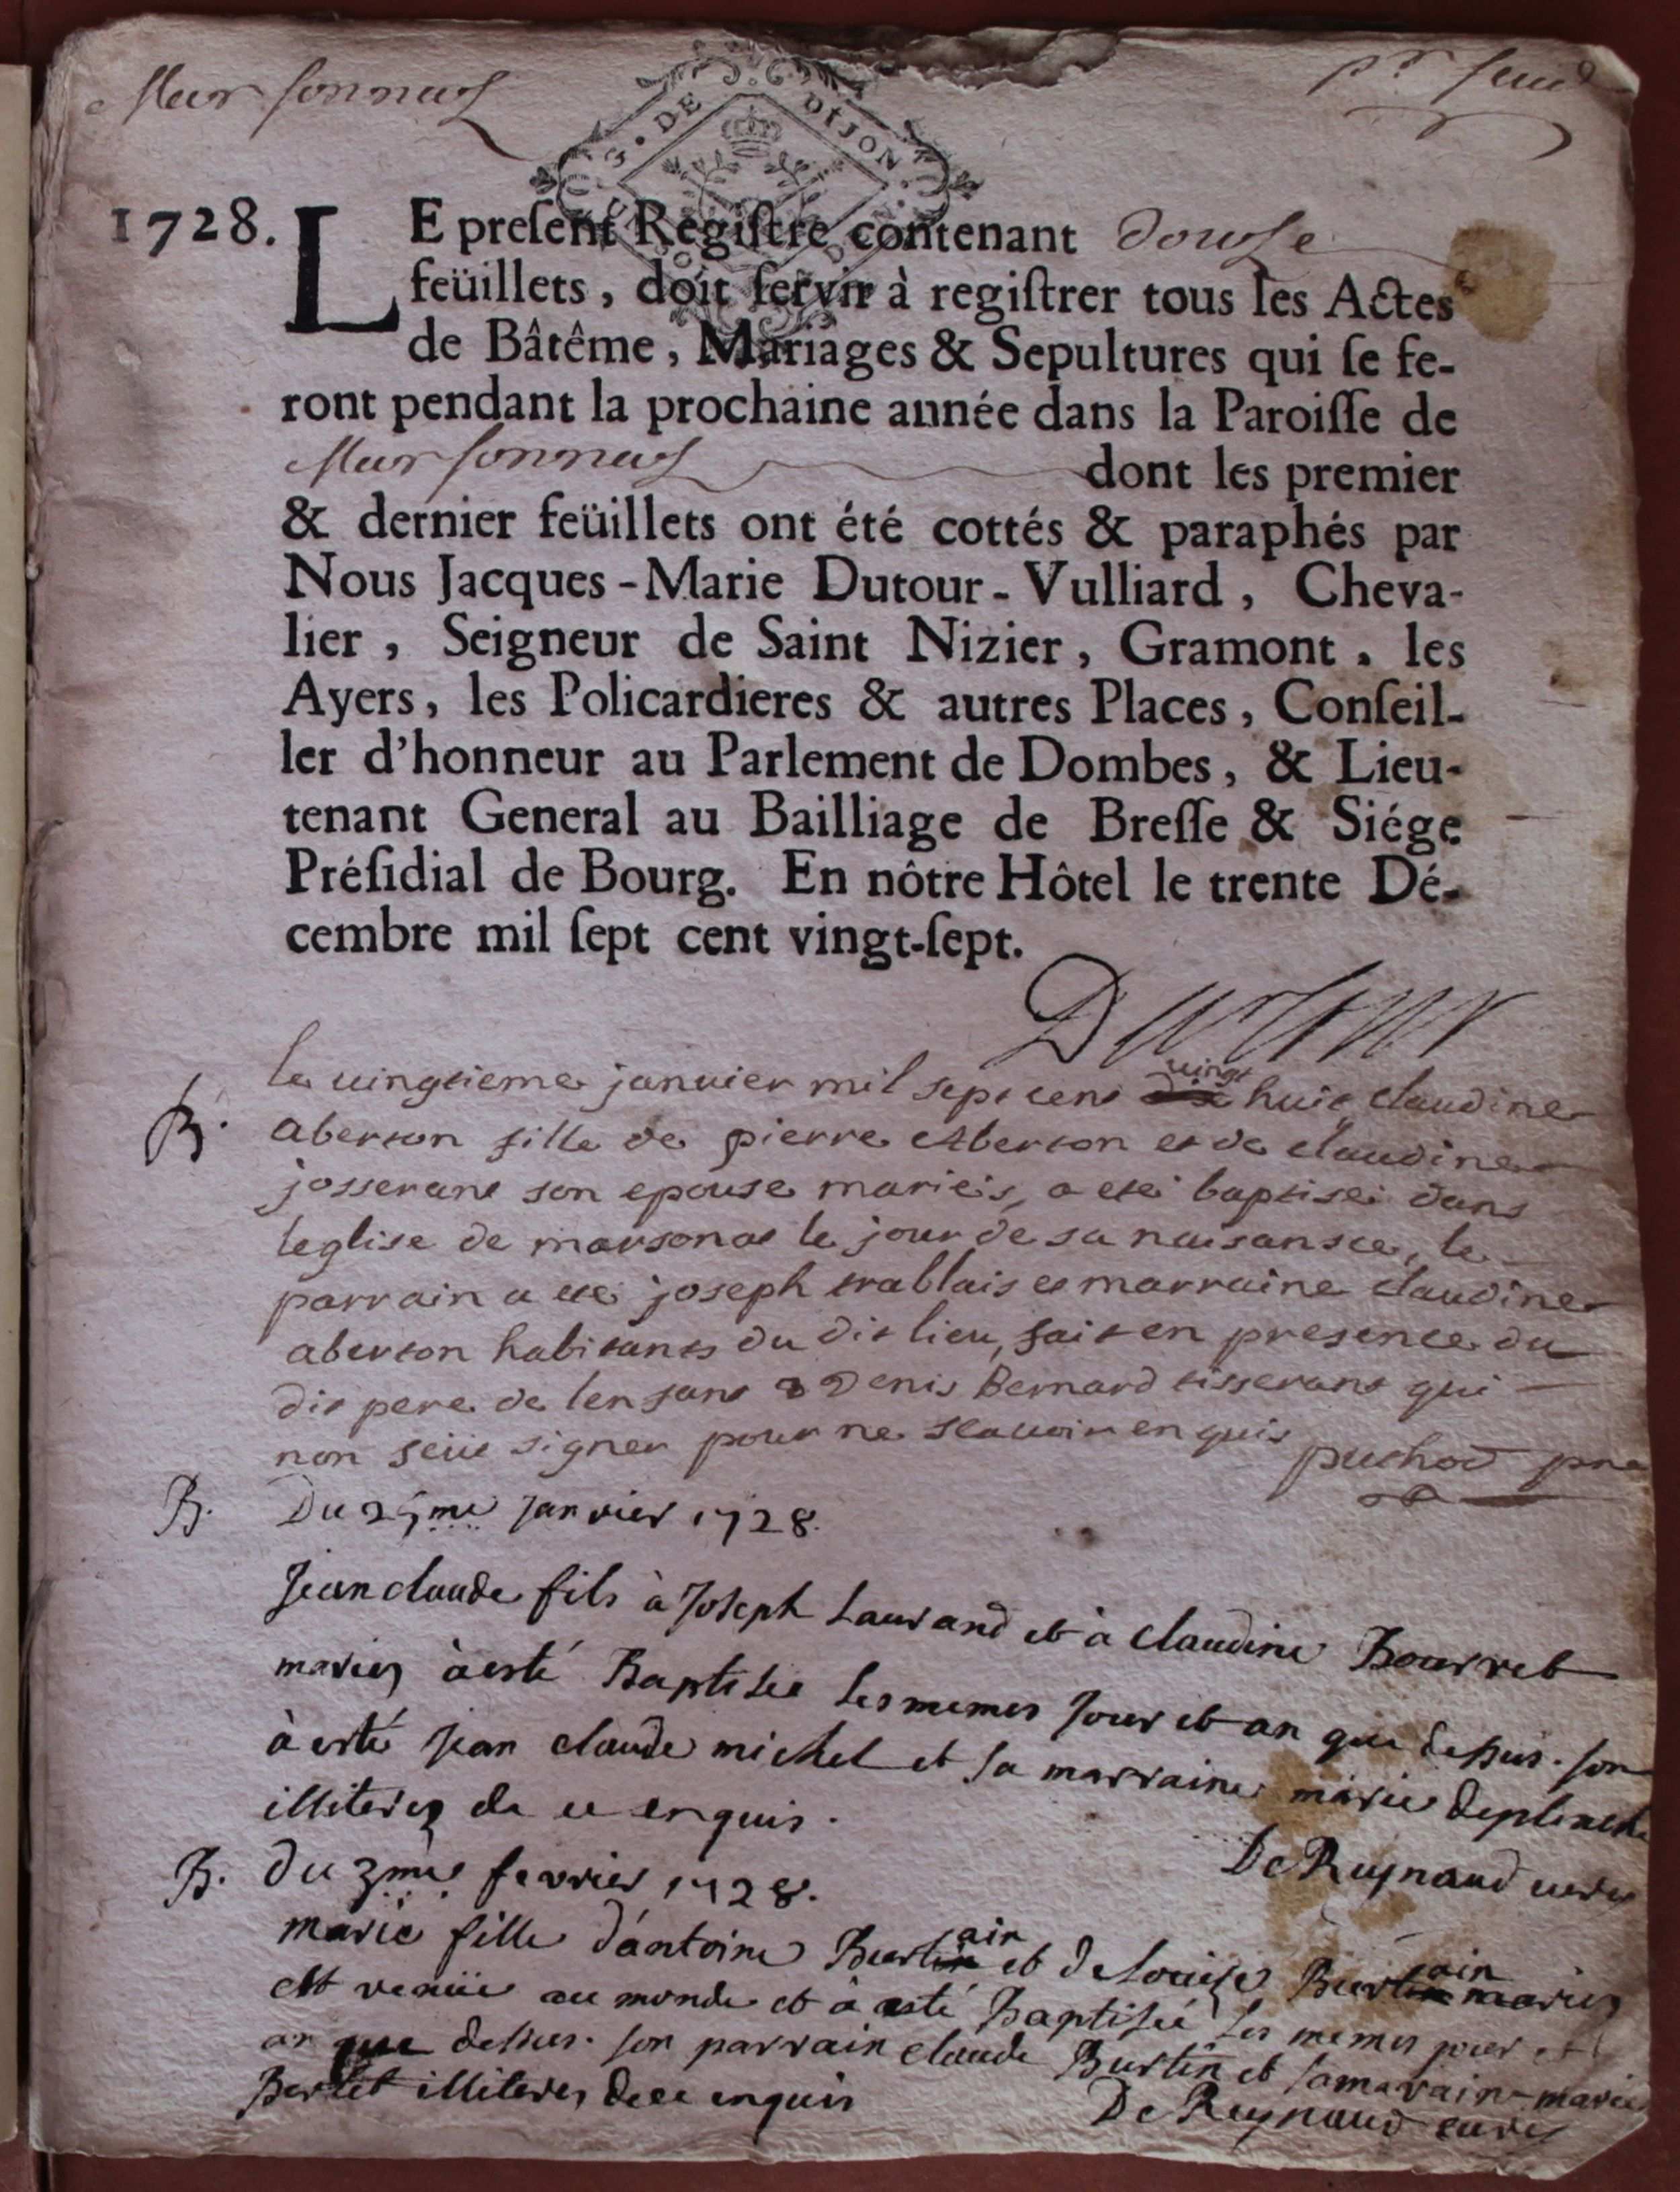 Marsonnas pr feuil
G. DE DIJON
1728. LE preſent Regiſtre contenant douſe
feüillets, doit ſervir à regiſtrer tous les Actes
de Bâtême, Mariages & Sepultures qui ſe fe-
ront pendant la prochaine année dans la Paroiſſe de
Marsonnas dont les premier
& dernier feüillets ont été cottés & paraphés par
Nous Jacques-Marie Dutour-Vulliard, Cheva-
lier, Seigneur de Saint Nizier, Gramont, les
Ayers, les Policardieres & autres Places, Conſeil-
ler d'honneur au Parlement de Dombes, & Lieu-
tenant General au Bailliage de Breſſe & Siége
Préſidial de Bourg. En nôtre Hôtel le trente Dé-
cembre mil ſept cent vingt-ſept.
Dutour
B. le vingtieme janvier mil sept cent vingt huit claudine
aberton fille de pierre Aberton et de claudine
josserant son epouse marieis, a etei baptisei dans
leglise de marsonas le jour de sa naisansce, le
parrain a etei joseph trablais et marraine claudine
aberton habitants du dit lieu, fait en presence du
dit pere de lenfant & Denis Bernard tisserant qui
non seüt signer pour ne scavoir enquis puthod ptre
B. Du 25me Janvier 1728.
Jean claude fils à Joseph Laurand et à claudine Bourret
mariez à esté Baptisée les memes Jour et an que dessus. son
à esté jean claude michel et sa marraine marie deplanche
illiterez de ce enquis.
De Reynaud curé
B. du 3me fevrier 1728.
marie fille d'antoine Burtin ain et de Louise Burtin ain mariez
est venüe au monde et à esté Baptisée les memes jour et
an que dessus. son parrain claude Burtin et sa maraine marie
Bertet illiterez de ce enquis De Reynaud curé